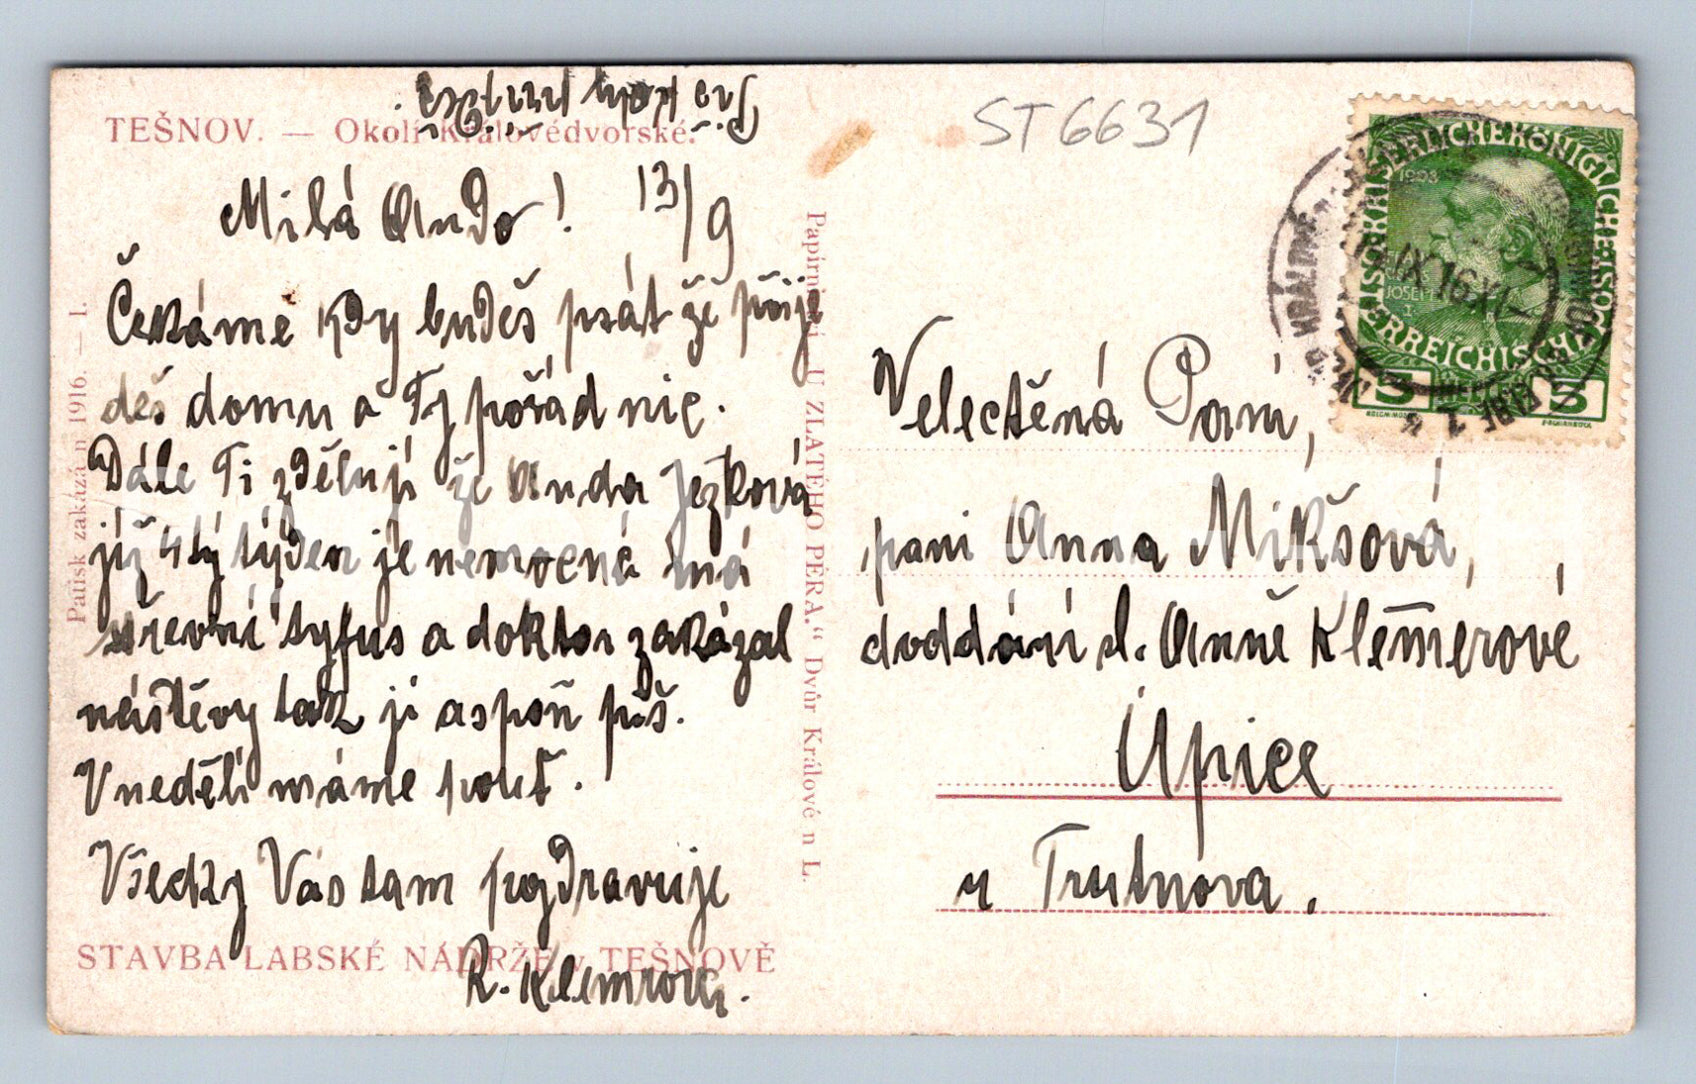 TEŠNOV. — Okolí Královédvorské.
Milá Ando! 13/9
Čekáme kdy budeš psát že přije
deš domu a Ty pořád nic.
Dále Ti zděluji že Anda Jezková
již 4tý týden je nemocná má
střevní tyfus a doktor zakázal
návštěvy tak jí aspoň piš.
V neděli máme pouť.
Všecky Vás tam pozdravuje
R. Klemrová.
STAVBA LABSKÉ NÁDRŽE v TEŠNOVĚ
Patisk zakázán 1916. — 1.
Papírnictví „U ZLATÉHO PÉRA.“ Dvůr Králové n L.
ST 6631
KAISERLICHE KÖNIGLICHE
ÖSTERREICHISCHE POST
1908
JOSEPH
I.
5 HELLER 5
IX 16
Velectěná Paní,
paní Anna Mikšová,
doddání sl. Anně Klemerové
Úpice
u Trutnova.